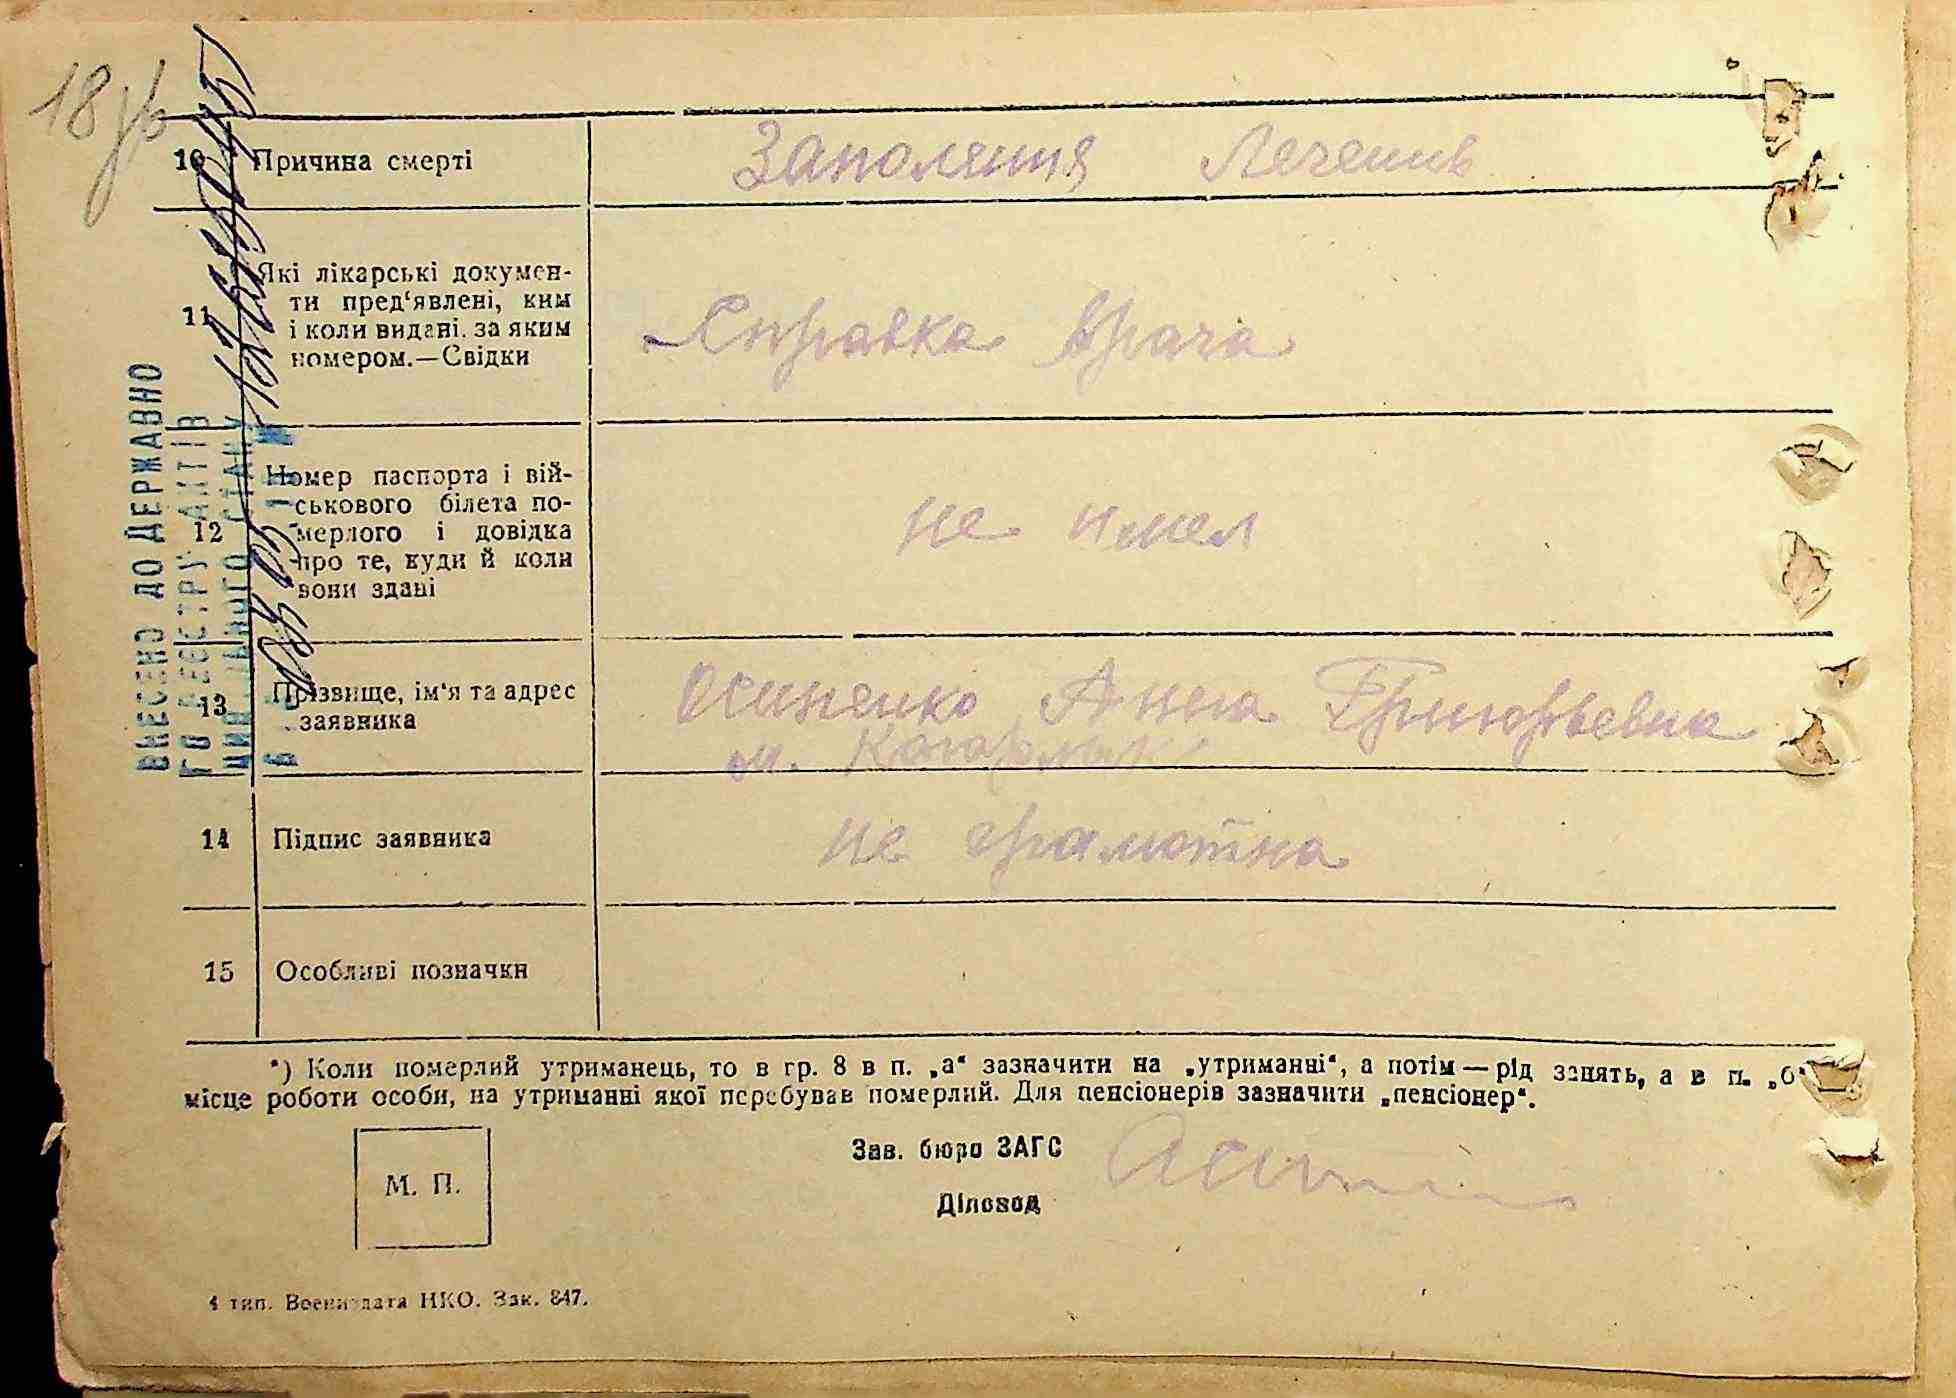 18 зв
10 Причина смерті Заполення Лечении
11 Які лікарські докумен-
ти пред‘явлені, ким
і коли видані. за яким
номером.—Свідки
Справка врача
12 Номер паспорта і вій-
ськового білета по-
мерлого і довідка
про те, куди й коли
вони здані
не имел
13 Прізвище, ім‘я та адрес
заявника
Осипенко Анна Григорьевна
м. Кагарлык
14 Підпис заявника не грамотна
15 Особливі позначки
*) Коли померлий утриманець, то в гр. 8 в п. „а“ зазначити на „утриманні“, а потім — рід занять, а в п. „б“
місце роботи особи, на утриманні якої перебував померлий. Для пенсіонерів зазначити „пенсіонер“.
М. П.
Зав. бюро ЗАГС
Діловод
4 тип. Воениздата НКО. Зак. 847.
ВНЕСЕНО ДО ДЕРЖАВНО
ГО РЕЄСТРУ АКТІВ
ЦИВІЛЬНОГО СТАНУ